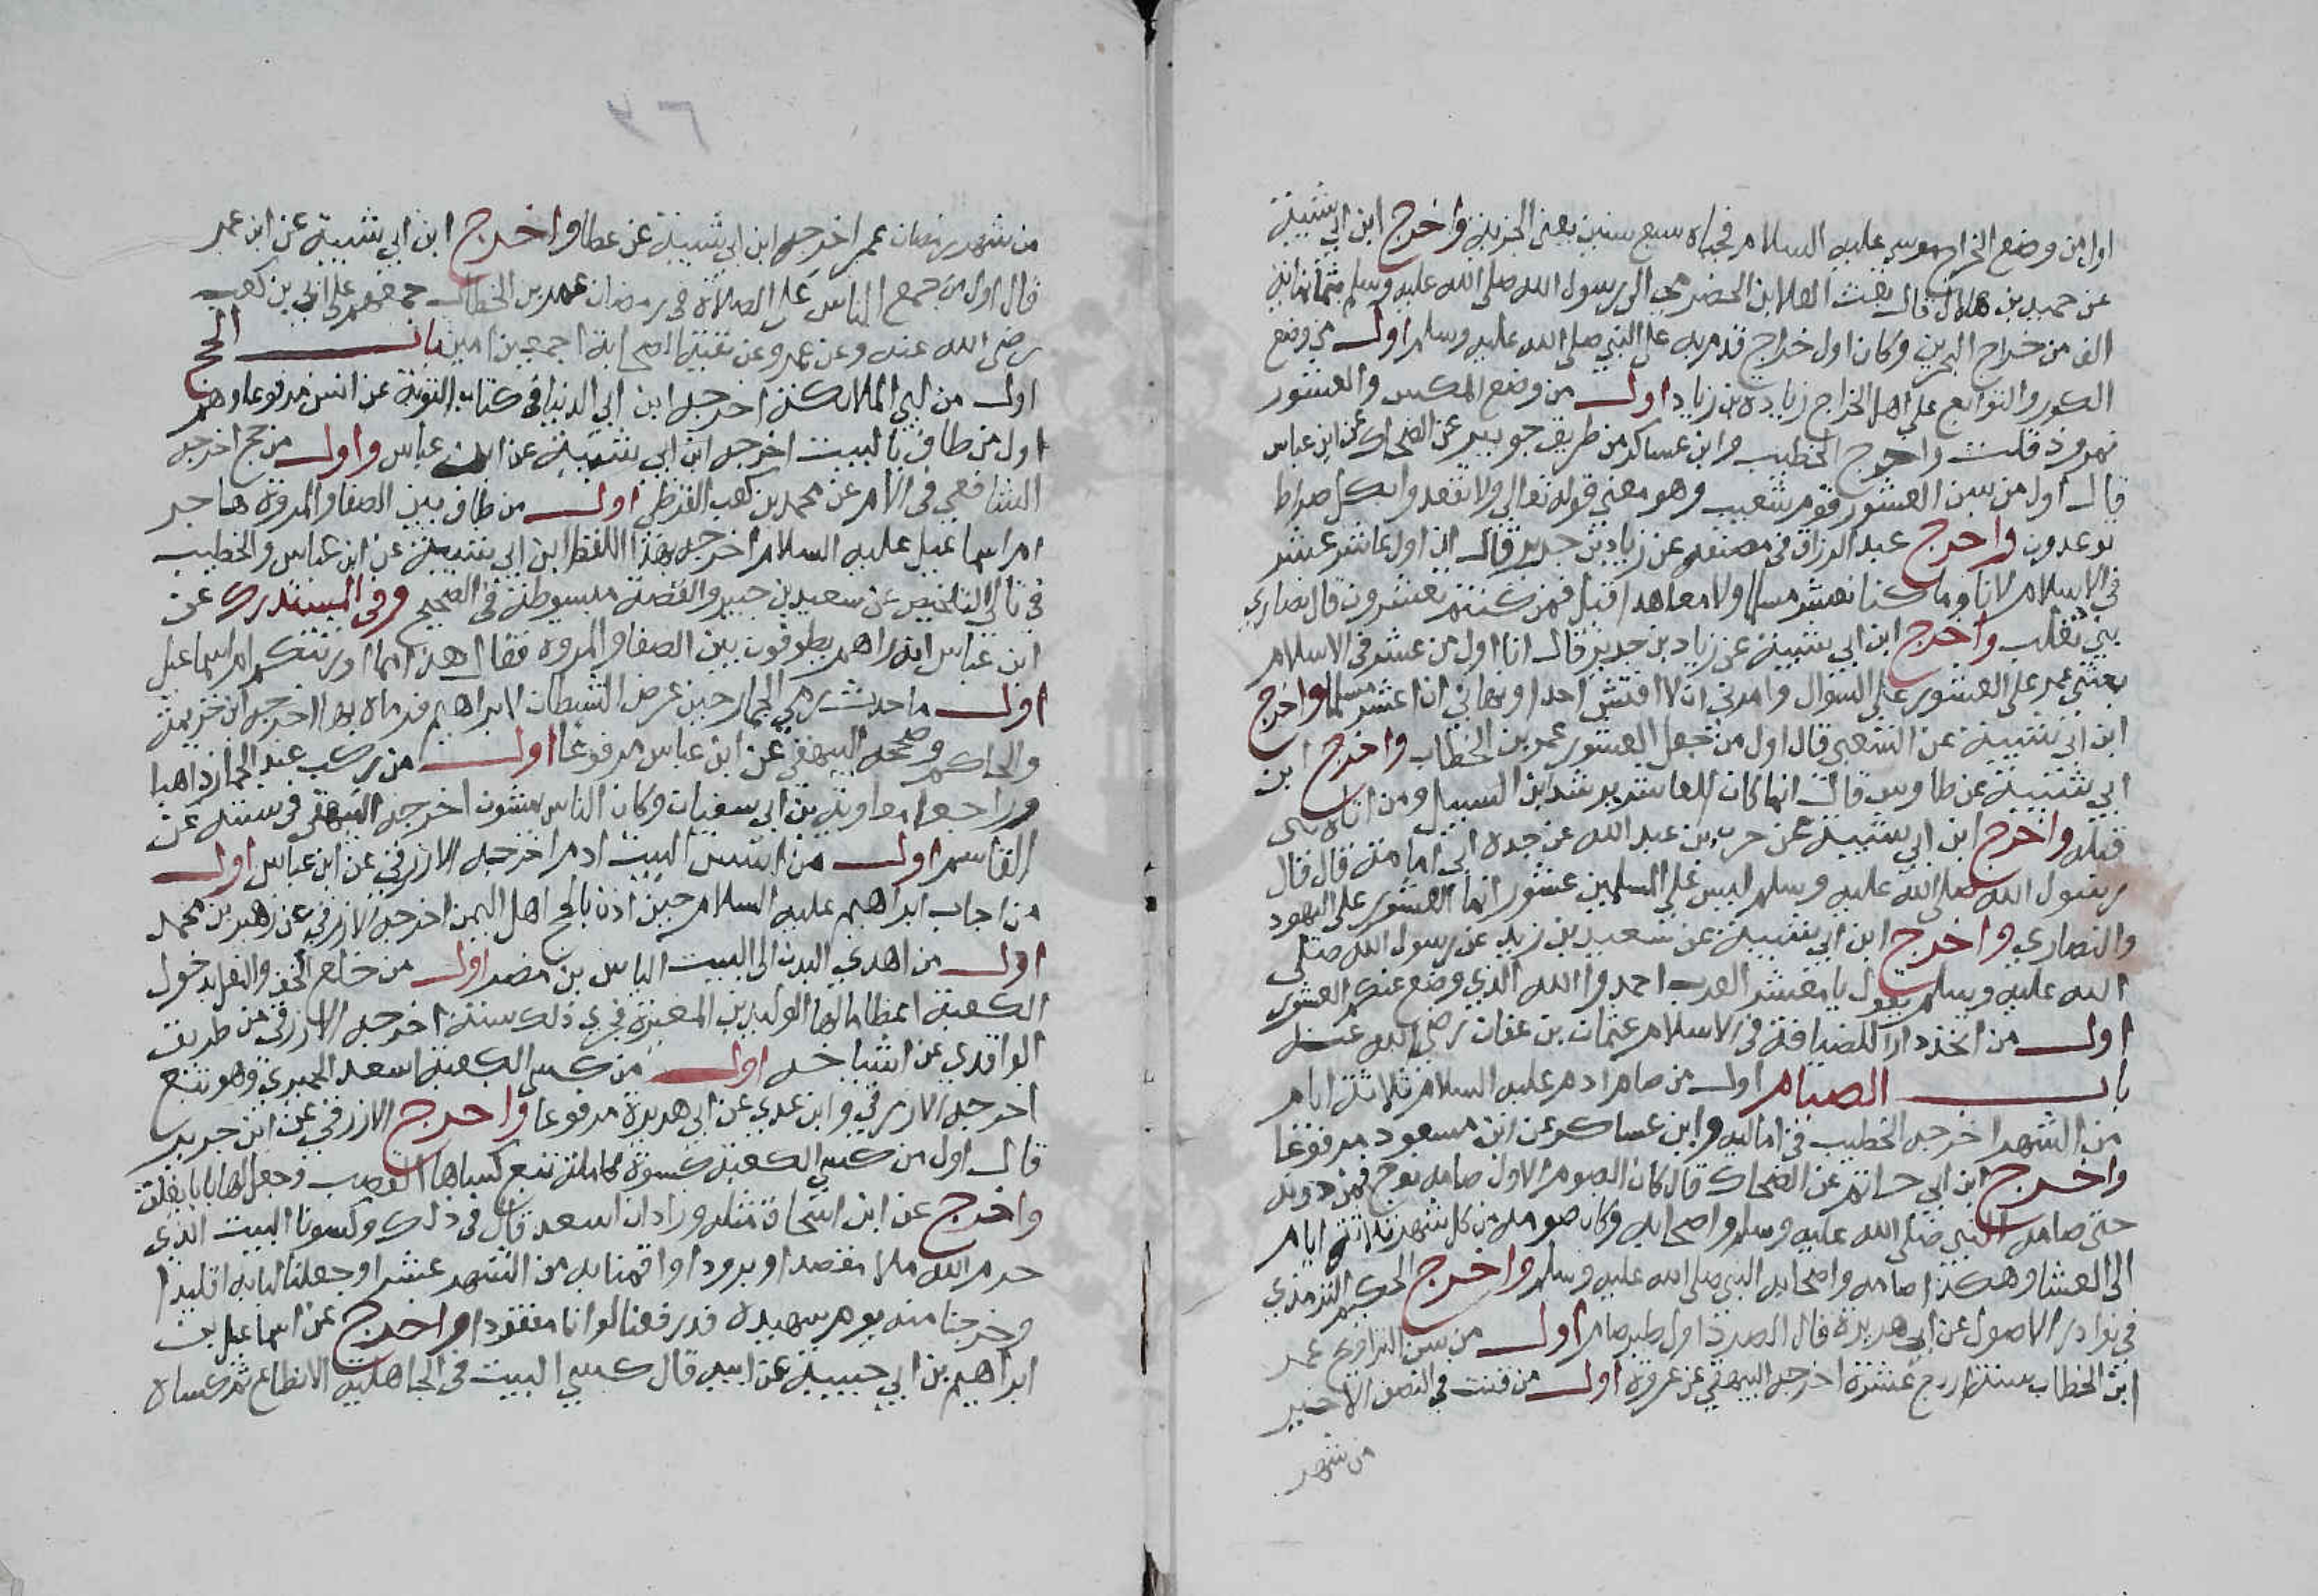 اول من وضع الخراج موسى عليه السلام فجباه سبع سنين يعنى الجزية واخرج ابن ابي شيبة
عن حميد بن هلال قال بعث العلا بن الحضرمي الى رسول الله صلى الله عليه وسلم بثمانمائة
الف من خراج البحرين وكان اول خراج قدم به على النبي صلى الله عليه وسلم اول من وضع
الكور والتوابع على اهل الخراج زيادة بن زياد اول من وضع المكس والعشور
نمرود قلت واخرج الخطيب وابن عساكر من طريق جويبر عن الضحاك عن ابن عباس
قال اول من سن العشور قوم شعيب وهو معنى قوله تعالى ولا تقعدوا بكل صراط
توعدون واخرج عبد الرزاق في مصنفه عن زياد بن جدير قال ان اول عاشر عشر
في الاسلام لانا وما كنا نعشر مسلما ولا معاهدا قيل فمن كنتم تعشرون قال نصاري
بني تغلب واخرج ابن ابي شيبة عن زياد بن جدير قال انا اول من عشر في الاسلام
بعثني عمر على العشور على السؤال وامرني ان لا افتش احدا ونهاني ان اعشر مسلما واخرج
ابن ابي شيبة عن الشعبي قال اول من جعل العشور عمر بن الخطاب واخرج ابن
ابي شيبة عن طاوس قال انما كان العاشر يرشد ابن السبيل ومن اتاه بشى
قبله واخرج ابن ابي شيبة عن حرب بن عبد الله عن جده ابي امامة قال قال
رسول الله صلى الله عليه وسلم ليس على المسلمين عشور انما العشور على اليهود
والنصاري واخرج ابن ابي شيبة عن سعيد بن زيد عن رسول الله صلى
الله عليه وسلم يقول يا معشر العرب احمدوا الله الذي وضع عنكم العشور
اول من اتخذ دارا للضيافة في الاسلام عثمان بن عفان رضى الله عنه
باب الصيام اول من صام ادم عليه السلام ثلاثة ايام
من الشهر اخرجه الخطيب في اماليه وابن عساكر عن ابن مسعود مرفوعا
واخرج ابن ابي حاتم عن الضحاك قال كان الصوم الاول صامه نوح فمن دونه
حتى صامه النبي صلى الله عليه وسلم واصحابه وكان صومه من كل شهر ثلاثة ايام
الى العشا وهكذا صامه واصحابه النبي صلى الله عليه وسلم واخرج الحكيم الترمذي
في نوادر الاصول عن ابي هريرة قال الصرد اول طير صام اول من سن التراويح عمر
ابن الخطاب سنة اربع عشرة اخرجه البيهقي عن عروة اول من قنت في النصف الاخير
من شهر
من شهر رمضان عمر اخرجه ابن ابي شيبة عن عطا واخرج ابن ابي شيبة عن ابن عمر
قال اول من جمع الناس على الصلاة في رمضان عمر بن الخطاب جمعهم على ابي بن كعب
رضى الله عنه وعن عمرو عن بقية الصحابة اجمعين امين باب الحج
اول من لبى الملائكة اخرجه ابن ابي الدنيا في كتاب التوبة عن انس مرفوعا وهم
اول من طاف بالبيت اخرجه ابن ابي شيبة عن ابن عباس واول من حج اخرجه
الشافعي في الام عن محمد بن كعب القرظي اول من طاف بين الصفا والمروة هاجر
ام اسماعيل عليه السلام اخرجه بهذا اللفظ ابن ابي شيبة عن ابن عباس والخطيب
في تالي التلخيص عن سعيد بن جبير والقصة مبسوطة في الصحيح وفي المستدرك عن
ابن عباس انه راهم يطوفون بين الصفا والمروة فقال هذا مما اورثتكم ام اسماعيل
اول ما حدث رمي الجمار حين عرض الشيطان لابراهيم فرماه بها اخرجه ابن خزيمة
والحاكم وصححه البيهقي عن ابن عباس مرفوعا اول من ركب عند الجمار ذاهبا
وراجعا معاوية بن ابي سفيان وكان الناس يمشون اخرجه البيهقي في سننه عن
القاسم اول من اسس البيت ادم اخرجه الازرقي عن ابن عباس اول
من اجاب ابراهيم عليه السلام حين اذن بالحج اهل اليمن اخرجه الازرقي عن زهير بن محمد
اول من اهدي البدن الى البيت الياس بن مضر اول من خلع الخف والنعل لدخول
الكعبة اعظاما لها الوليد بن المغيرة فجري ذلك سنة اخرجه الازرقي من طريق
الواقدي عن اشياخه اول من كسى الكعبة اسعد الحميري وهو تبع
اخرجه الازرقي وابن عدي عن ابي هريرة مرفوعا واخرج الازرقي عن ابن جرير
قال اول من كسى الكعبة كسوة كاملة تبع كساها العصب وجعل لها بابا يغلق
واخرج عن ابن اسحاق مثله وزاد ان اسعد قال في ذلك وكسونا البيت الذي
حرم الله ملا مقصدا وبرودا واقمنا به من الشهر عشرا وجعلنا لبابه اقليدا
وخرجنا منه يوم سهيدة قد رفعنا لوانا معقودا واخرج عن اسماعيل بن
ابراهيم بن ابي حبيبة عن ابيه قال كسي البيت في الجاهلية الانطاع ثم كساه